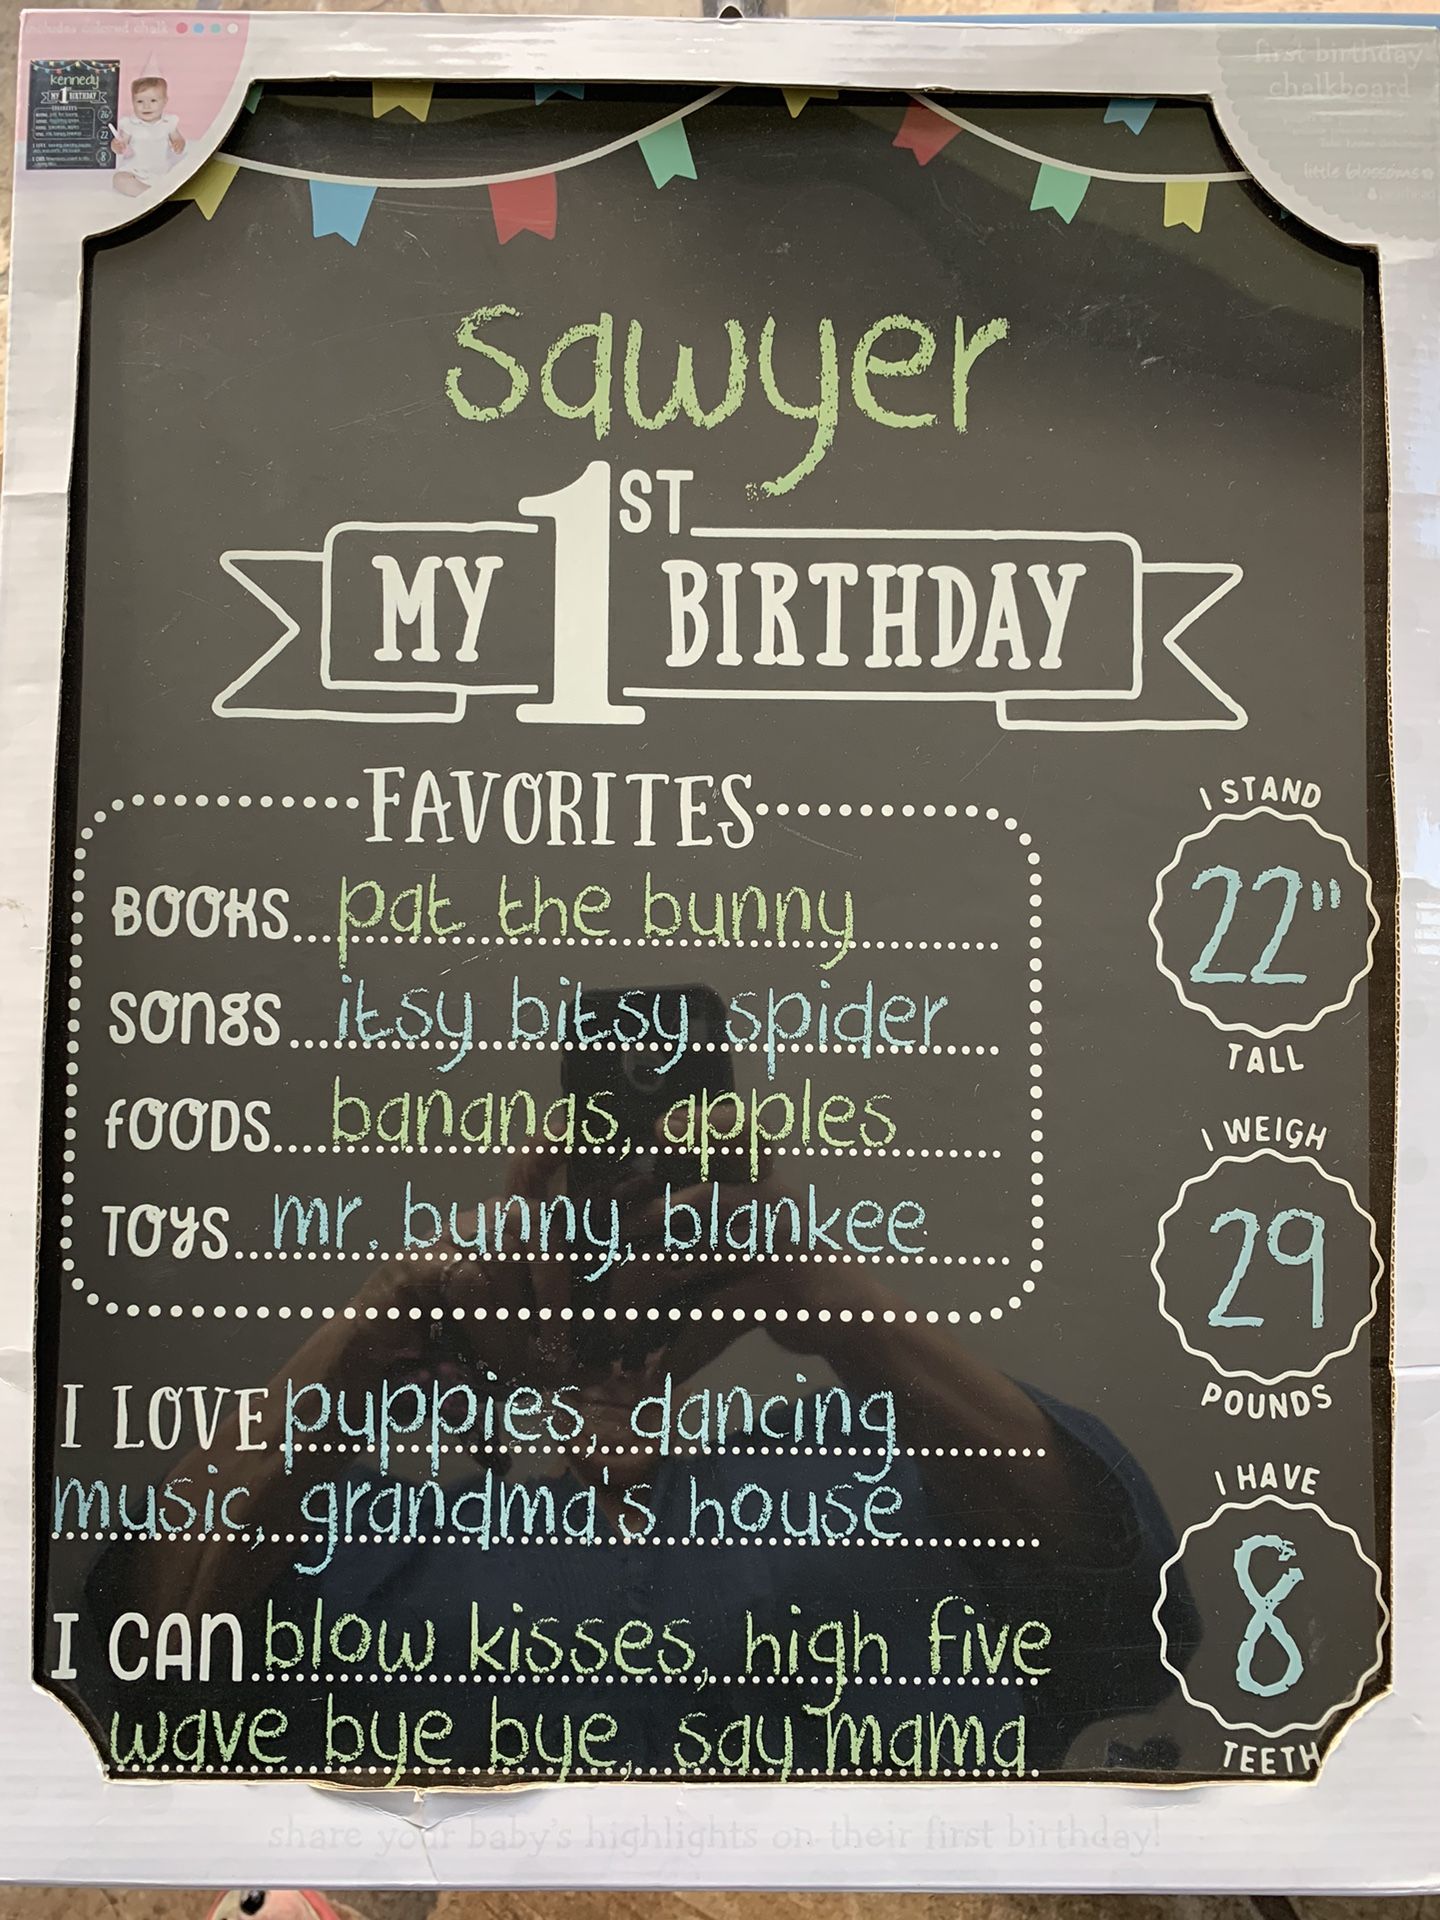 includes colored chalk
kennedy
MY 1 BIRTHDAY
first birthday
chalkboard
little blossoms
sawyer
MY 1ST BIRTHDAY
FAVORITES
BOOKS pat the bunny
SONGS itsy bitsy spider
FOODS bananas, apples
TOYS mr. bunny, blankee
I LOVE puppies, dancing
music, grandma's house
I CAN blow kisses, high five
wave bye bye, say mama
I STAND
22"
TALL
I WEIGH
29
POUNDS
I HAVE
8
TEETH
share your baby's highlights on their first birthday!